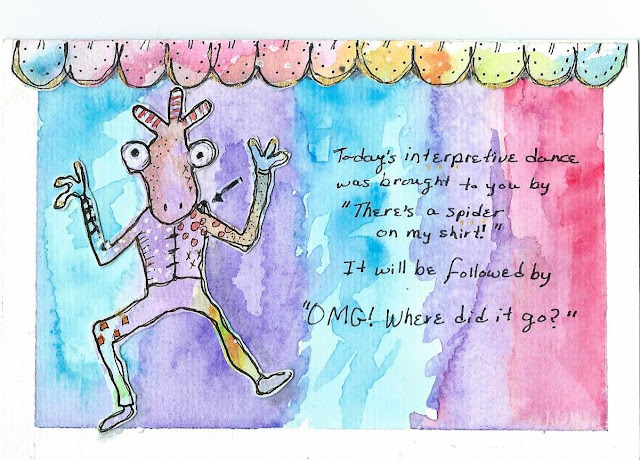 Today's interpretive dance
was brought to you by
"There's a spider
on my shirt!"
It will be followed by
"OMG! Where did it go?"